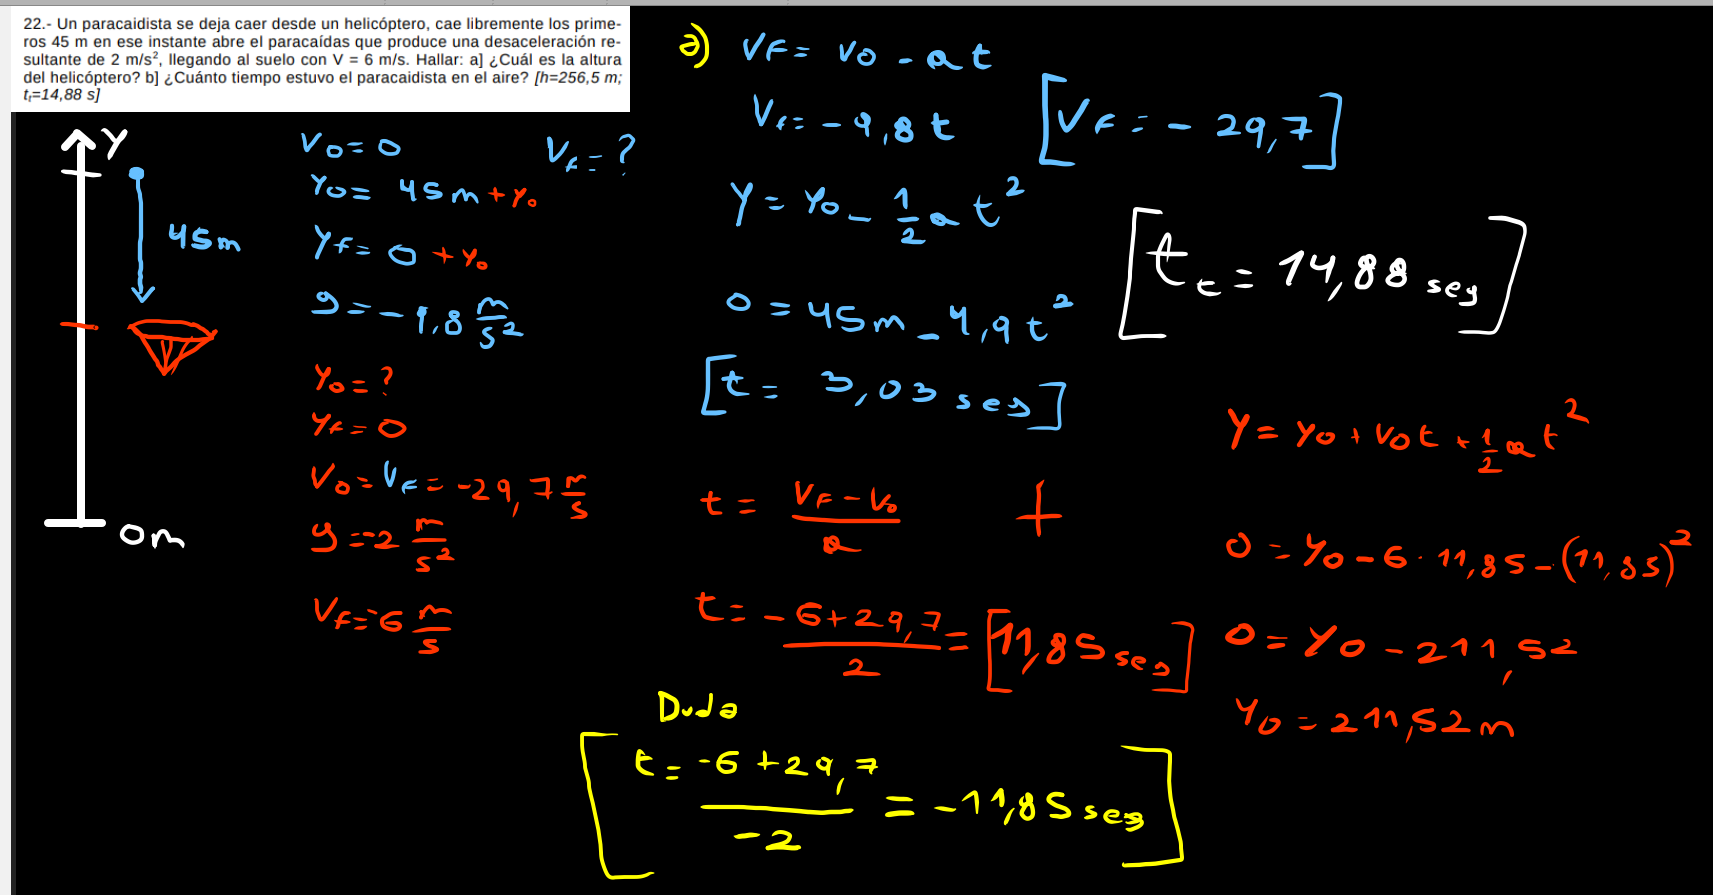 22.- Un paracaidista se deja caer desde un helicóptero, cae libremente los prime-
ros 45 m en ese instante abre el paracaídas que produce una desaceleración re-
sultante de 2 m/s², llegando al suelo con V = 6 m/s. Hallar: a] ¿Cuál es la altura
del helicóptero? b] ¿Cuánto tiempo estuvo el paracaidista en el aire? [h=256,5 m;
tₜ=14,88 s]
Y
45m
0m
V0=0
Vf=?
Y0= 45m+Y0
Yf= 0 +Y0
g=-9,8 m/s²
Y0=?
Yf=0
V0=Vf=-29,7 m/s
g=-2 m/s²
Vf=-6 m/s
a) VF= V0 - at
Vf= -9,8t
[VF= - 29,7]
Y= Y0 - 1/2 at²
0 = 45m - 4,9t²
[t= 3,03 seg]
[tt = 14,88 seg]
t= VF-V0/a
+
t= -6+29,7/2 = [11,85 seg]
Y= Y0 + V0t + 1/2 at²
0 = Y0 - 6 · 11,85 - (11,85)²
0= Y0 - 211,52
Y0 = 211,52m
Duda
[t= -6+29,7/-2 = -11,85 seg]